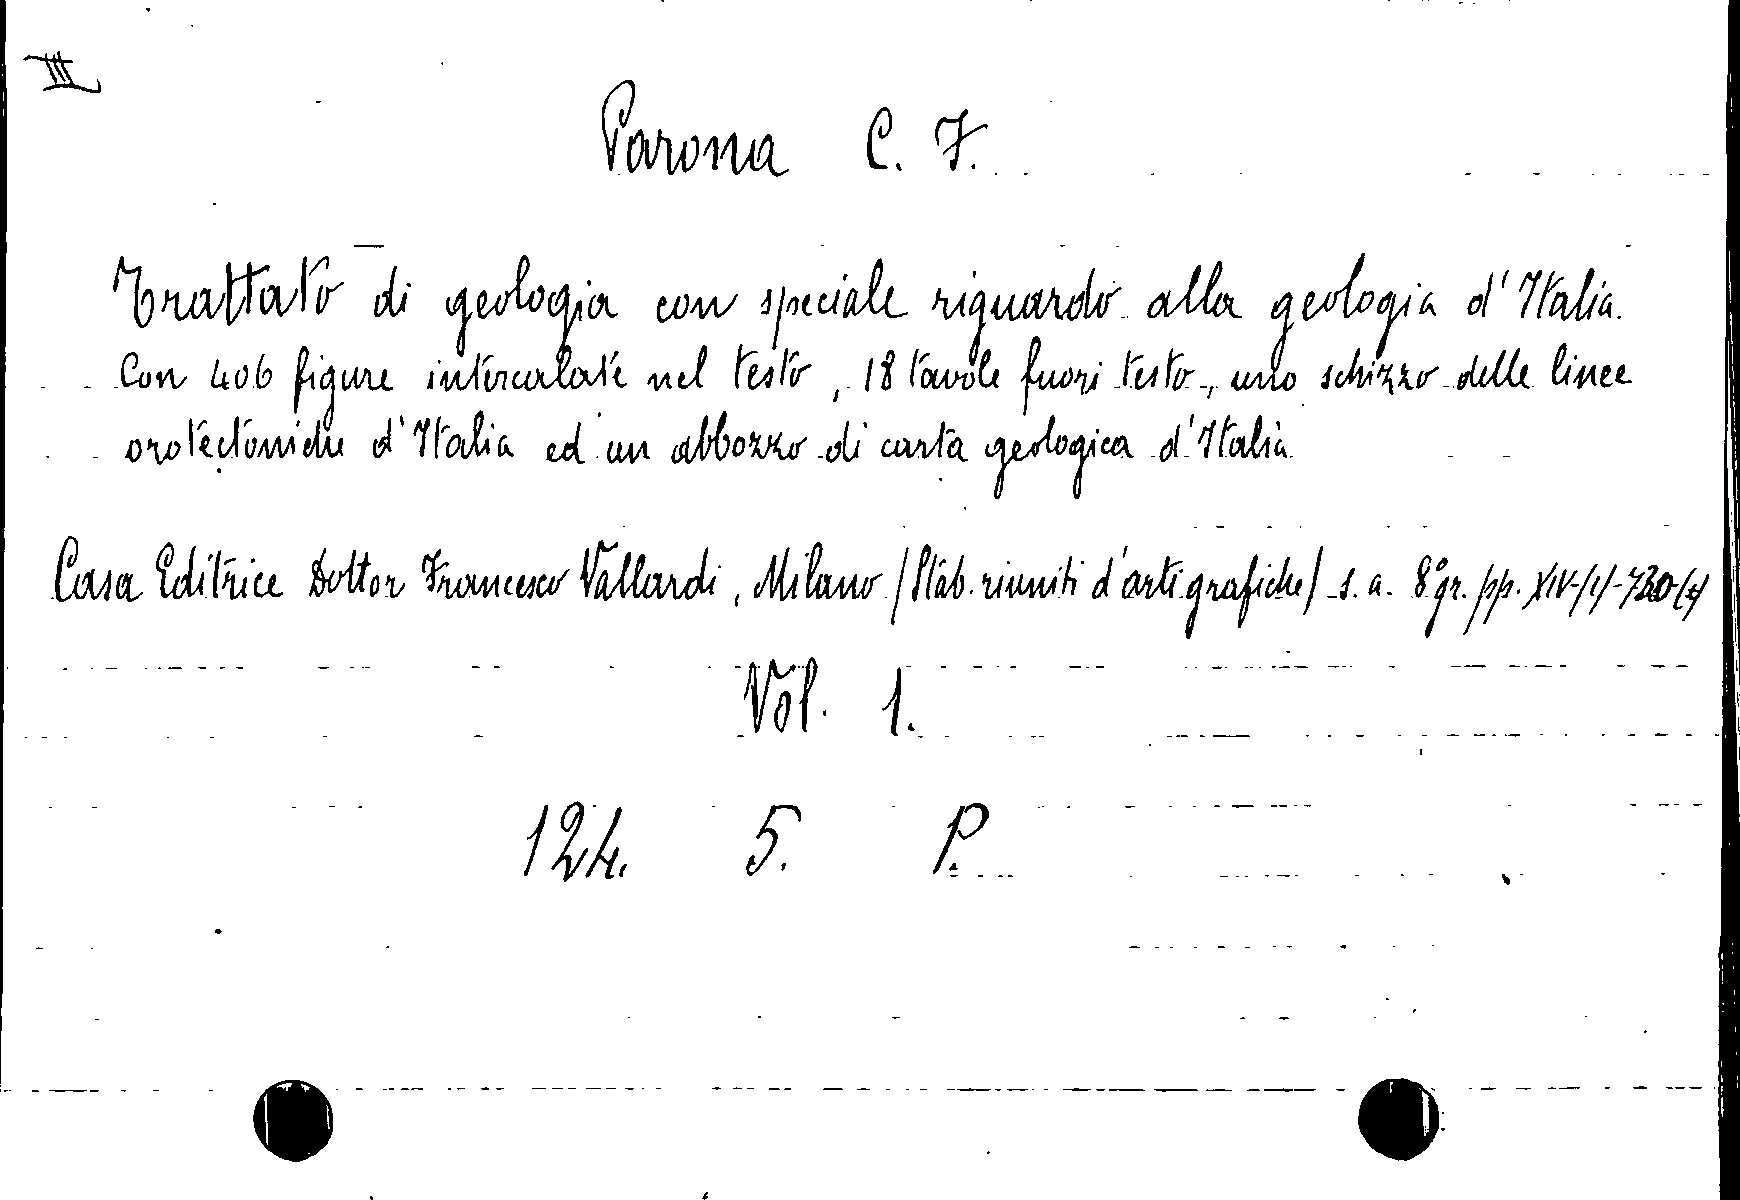 III
Parona C. F.
Trattato di geologia con speciale riguardo alla geologia d'Italia.
Con 406 figure intercalate nel testo, 18 tavole fuori testo, uno schizzo delle linee
orotectoniche d'Italia ed un abbozzo di carta geologica d'Italia
Casa Editrice Dottor Francesco Vallardi, Milano (Stab. riuniti d'arti grafiche) s. a. 8° gr. pp. XIV-(1)-730-
Vol. 1.
124. 5. P.